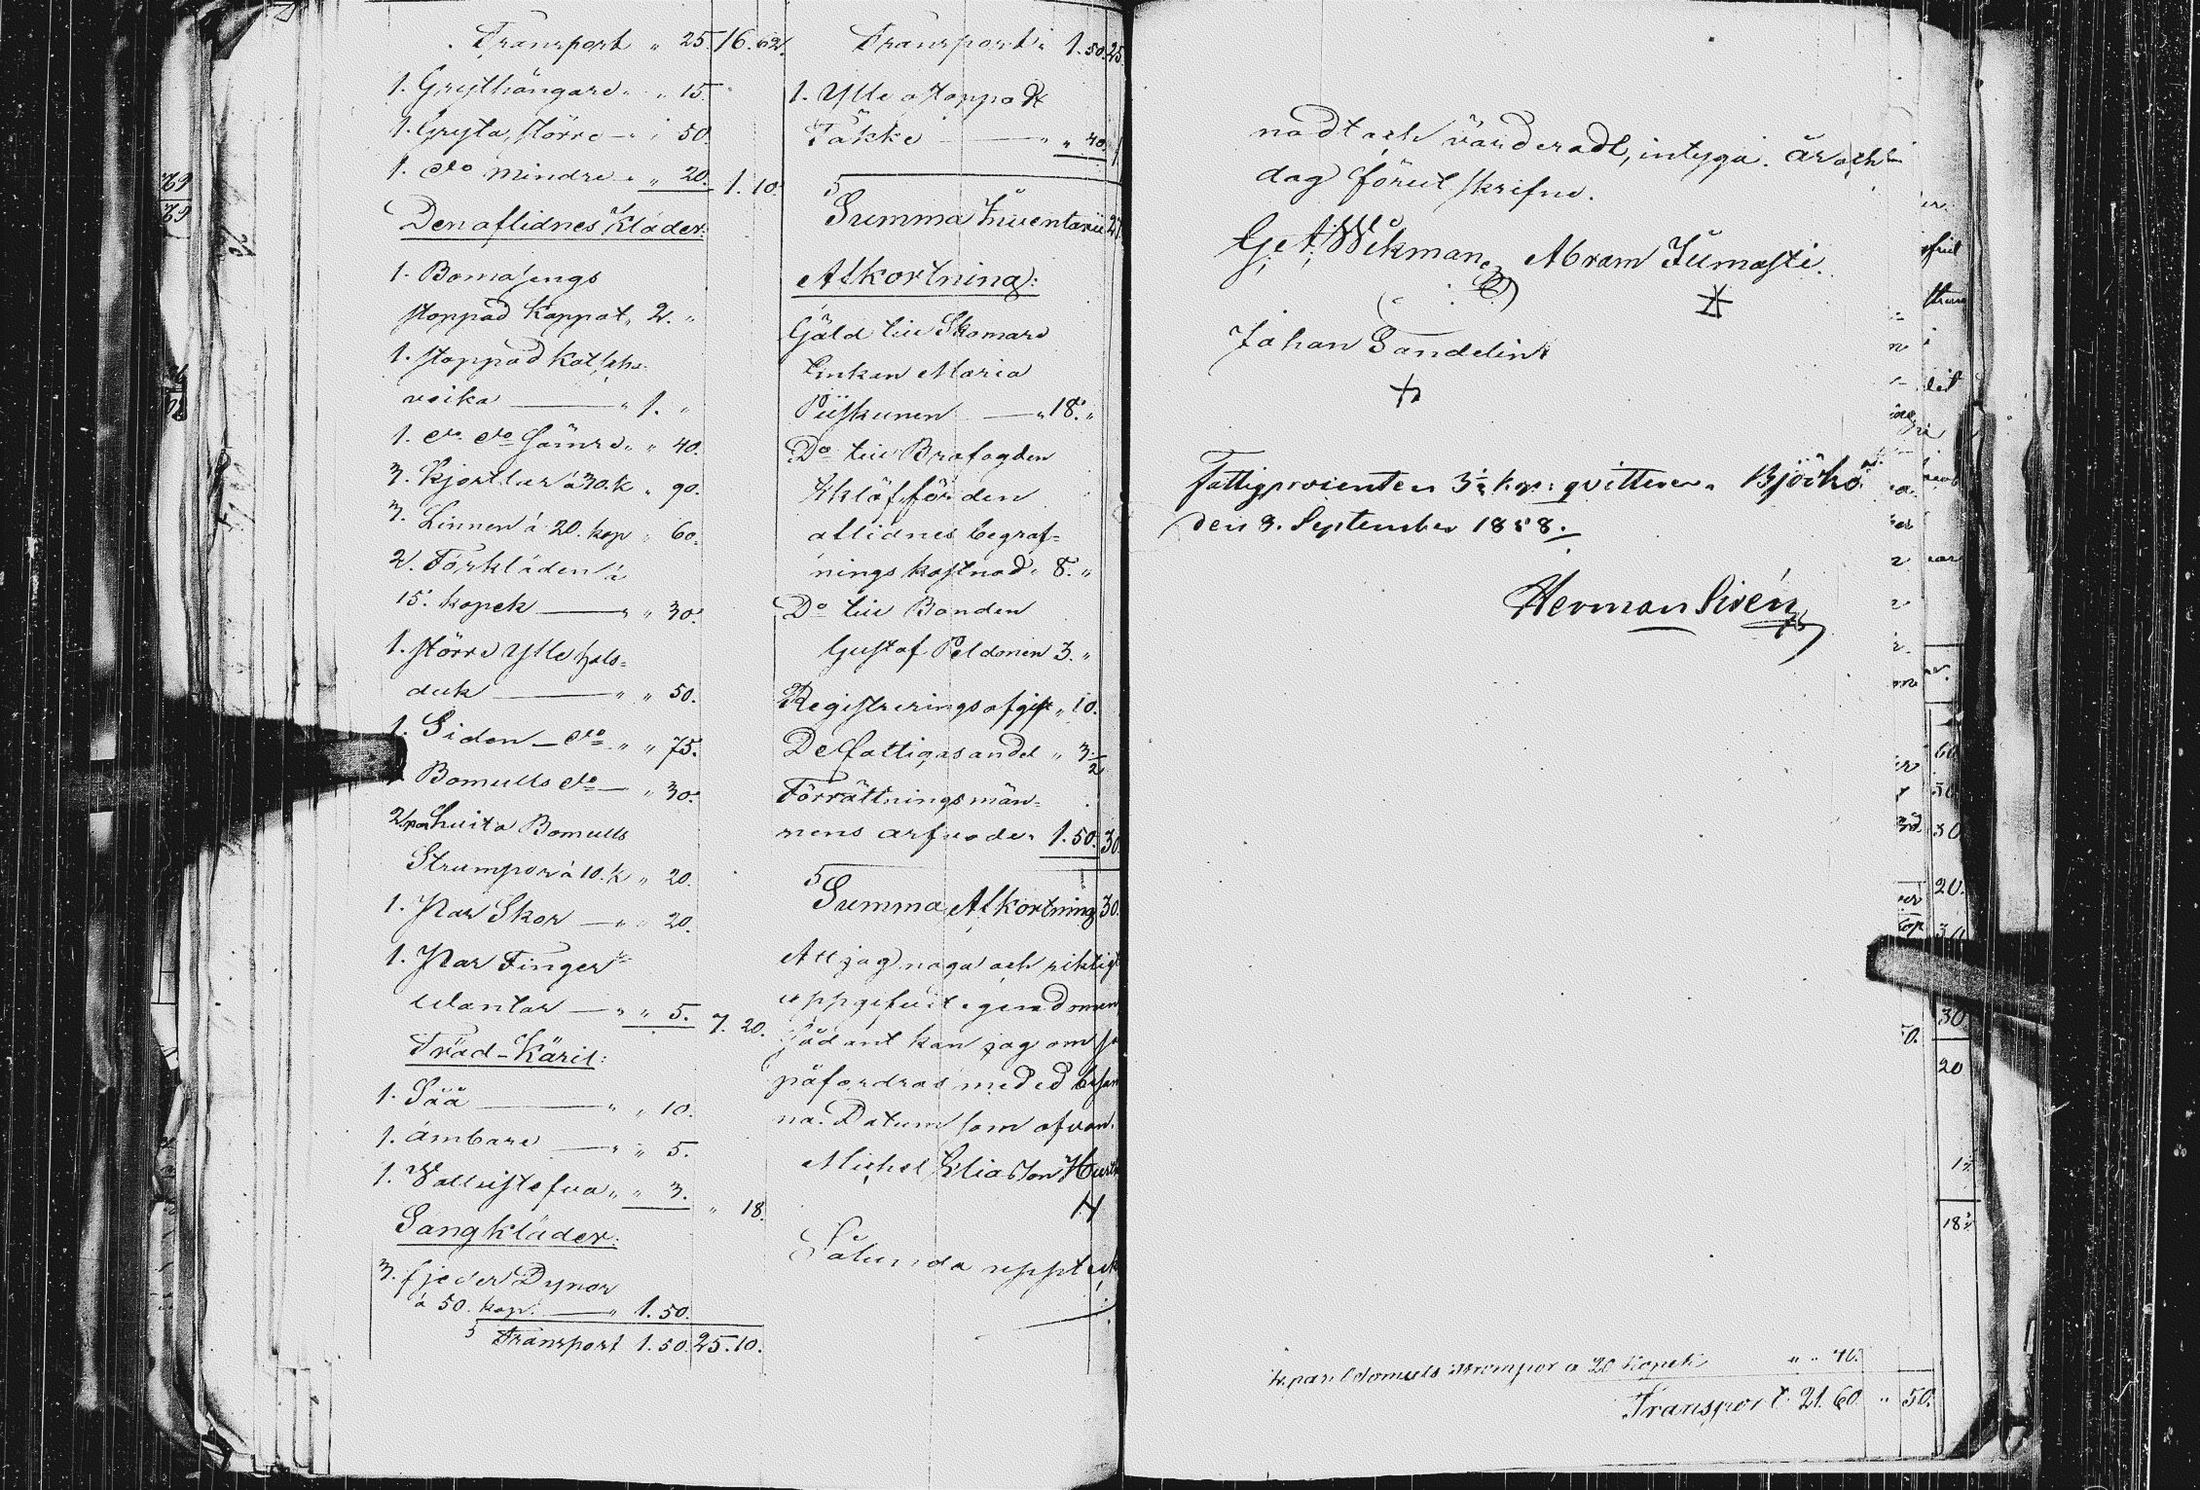 Transport " 25. 16. 62.
1. Grythängare " " 15.
1. Gryta, större — " 50.
1. dto mindre " " 20. 1. 10.
Den aflidnes Kläder:
1. Bomasengs
stoppad Kappot, 2. "
1. stoppad Kat
veika — " 1. "
1. dto dto Sämre " " 40.
3. Kjortlar á 30. K " 90.
3. Linnen á 20. kop " 60.
2. Förkläden á
15. kopek — " " 30.
1. större Ylle hals=
duk — " " 50.
1. Siden — dto " " 75.
Bomulls dto — " 30.
2 par hvita Bomulls
Strumpor á 10. K " 20.
1. Par Skor — " " 20.
1. Par Finger
Wantar — " " 5. 7. 20.
Träd-Käril:
1. Såå — " " 10.
1. ämbare — " " 5.
1. " " 3. " 18.
Sängkläder:
3. fjeder Dynor
á 50. kop. — " 1. 50.
Transport 1. 50. 25. 10.
Transport " 1. 50. 25.
1. Ylle stoppadt
Täkke — " " 40.
Summa Inventarii 27
Afkortning:
Gäld till Skomare
Enkan Maria
Piiskunen — " 18. "
Do till Brofogden
Eklöf för den
aflidnes begraf=
ningskostnad " 8. "
Do till Bonden
Gustaf Peldonen 3. "
Registreringsafgift " 10.
De fattigas andel " 3 1/2
Förrättningsmän=
nens arfvode " 1. 50. 30
Summa Afkortning 30.
Att jag noga och riktigt
uppgifvit egendomen
sådant kan jag om så
påfordras med ed besan
na. Datum som ofvan.
Michel Eliasson
H
Sålunda upptek
nadt och värderadt, intyga. År och
dag förut skrifne.
G. A. Wikman Abram Jumasti.
Johan Sandelin
Fattigprocenten 3 1/2 kop: qvitteras. Björkö
den 8. September 1858.
Herman Sirén
par bomuls strumpor a 20 Kopek " " 40.
Transport 21. 60 " 50.